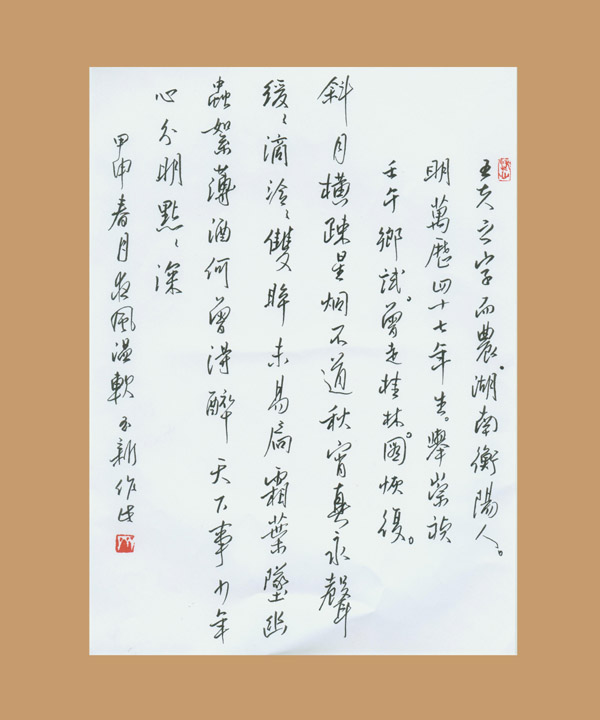 王夫之字而農。湖南衡陽人。
明萬歷四十七年生。舉崇禎
壬午鄉試。曾走桂林。圖恢復。
斜月橫疎星烱不道秋宵真永聲
緩〻滴泠〻雙眸未易扃霜葉墜幽
蟲絮薄酒何曾得醉天下事少年
心分明點〻深
甲申春月夜風溫軟新作此